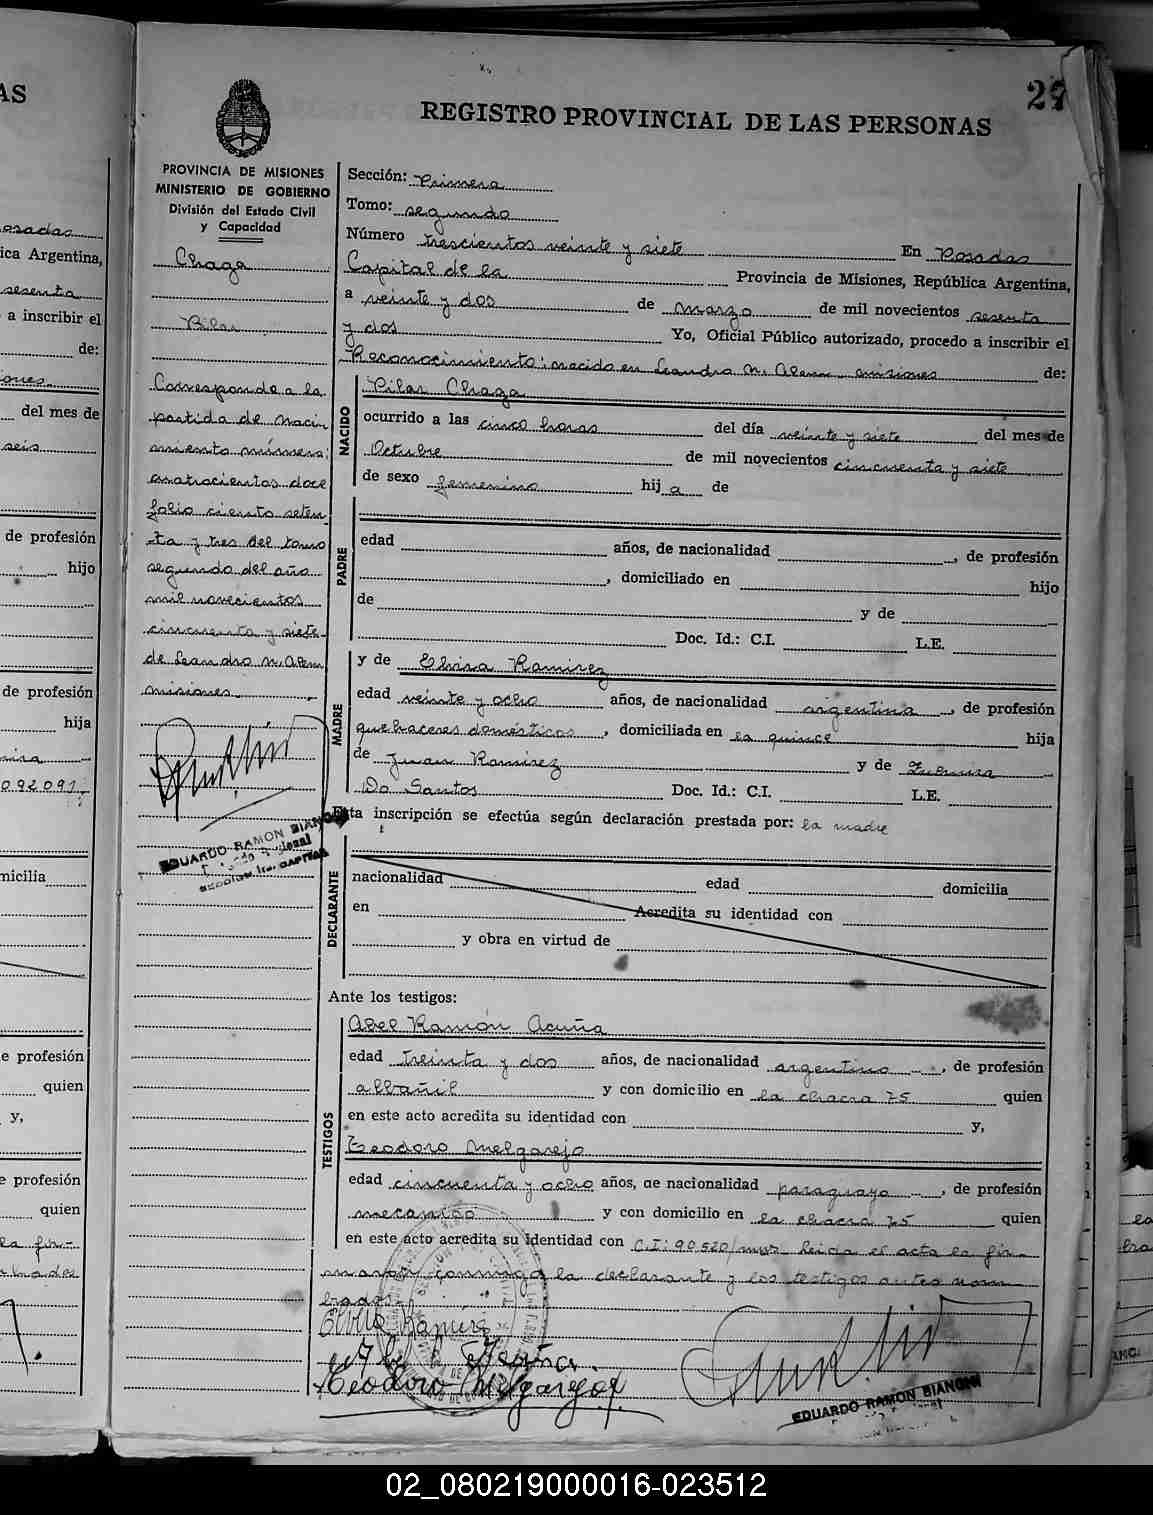 AS
osadas
ica Argentina,
sesenta
a inscribir el
de:
iones.
del mes de
seis
de profesión
hijo
de profesión
hija
092091,
micilia
e profesión
quien
y,
e profesión
quien
27
REGISTRO PROVINCIAL DE LAS PERSONAS
PROVINCIA DE MISIONES
MINISTERIO DE GOBIERNO
División del Estado Civil
y Capacidad
Chaga
Pilar
Corresponde a la
partida de naci
miento número:
cuatrocientos doce
folio ciento seten
ta y tres del tomo
segundo del año
mil novecientos
cincuenta y siete
de Leandro N. Alem
misiones.
EDUARDO RAMON BIANCHI
Sección: Primera
Tomo: segundo
Número trescientos veinte y siete En Posadas
Capital de la Provincia de Misiones, República Argentina,
a veinte y dos de marzo de mil novecientos sesenta
y dos Yo, Oficial Público autorizado, procedo a inscribir el
Reconocimiento: nacido en Leandro N. Alem misiones de:
NACIDO
Pilar Chaga
ocurrido a las cinco horas del día veinte y siete del mes de
Octubre de mil novecientos cincuenta y siete
de sexo femenino hij a de
PADRE
edad años, de nacionalidad , de profesión
, domiciliado en hijo
de y de
Doc. Id.: C.I. L.E.
MADRE
y de Elvira Ramirez
edad veinte y ocho años, de nacionalidad argentina , de profesión
quehaceres domésticos , domiciliada en la quince hija
de Juan Ramirez y de
Do Santos Doc. Id.: C.I. L.E.
Esta inscripción se efectúa según declaración prestada por: la madre
DECLARANTE
nacionalidad edad domicilia
en Acredita su identidad con
y obra en virtud de
Ante los testigos:
TESTIGOS
Abel Ramón Acuña
edad treinta y dos años, de nacionalidad argentino , de profesión
albañil y con domicilio en la chacra 75 quien
en este acto acredita su identidad con y,
Teodoro Melgarejo
edad cincuenta y ocho años, de nacionalidad paraguayo , de profesión
mecanico y con domicilio en la chacra 75 quien
en este acto acredita su identidad con C.I: 90.520/ leida el acta la fir
maron conmigo la declarante y los testigos antes nom
brados.
Elvira Ramirez
Acuña
Teodoro Melgarejo
EDUARDO RAMON BIANCHI
02_080219000016-023512